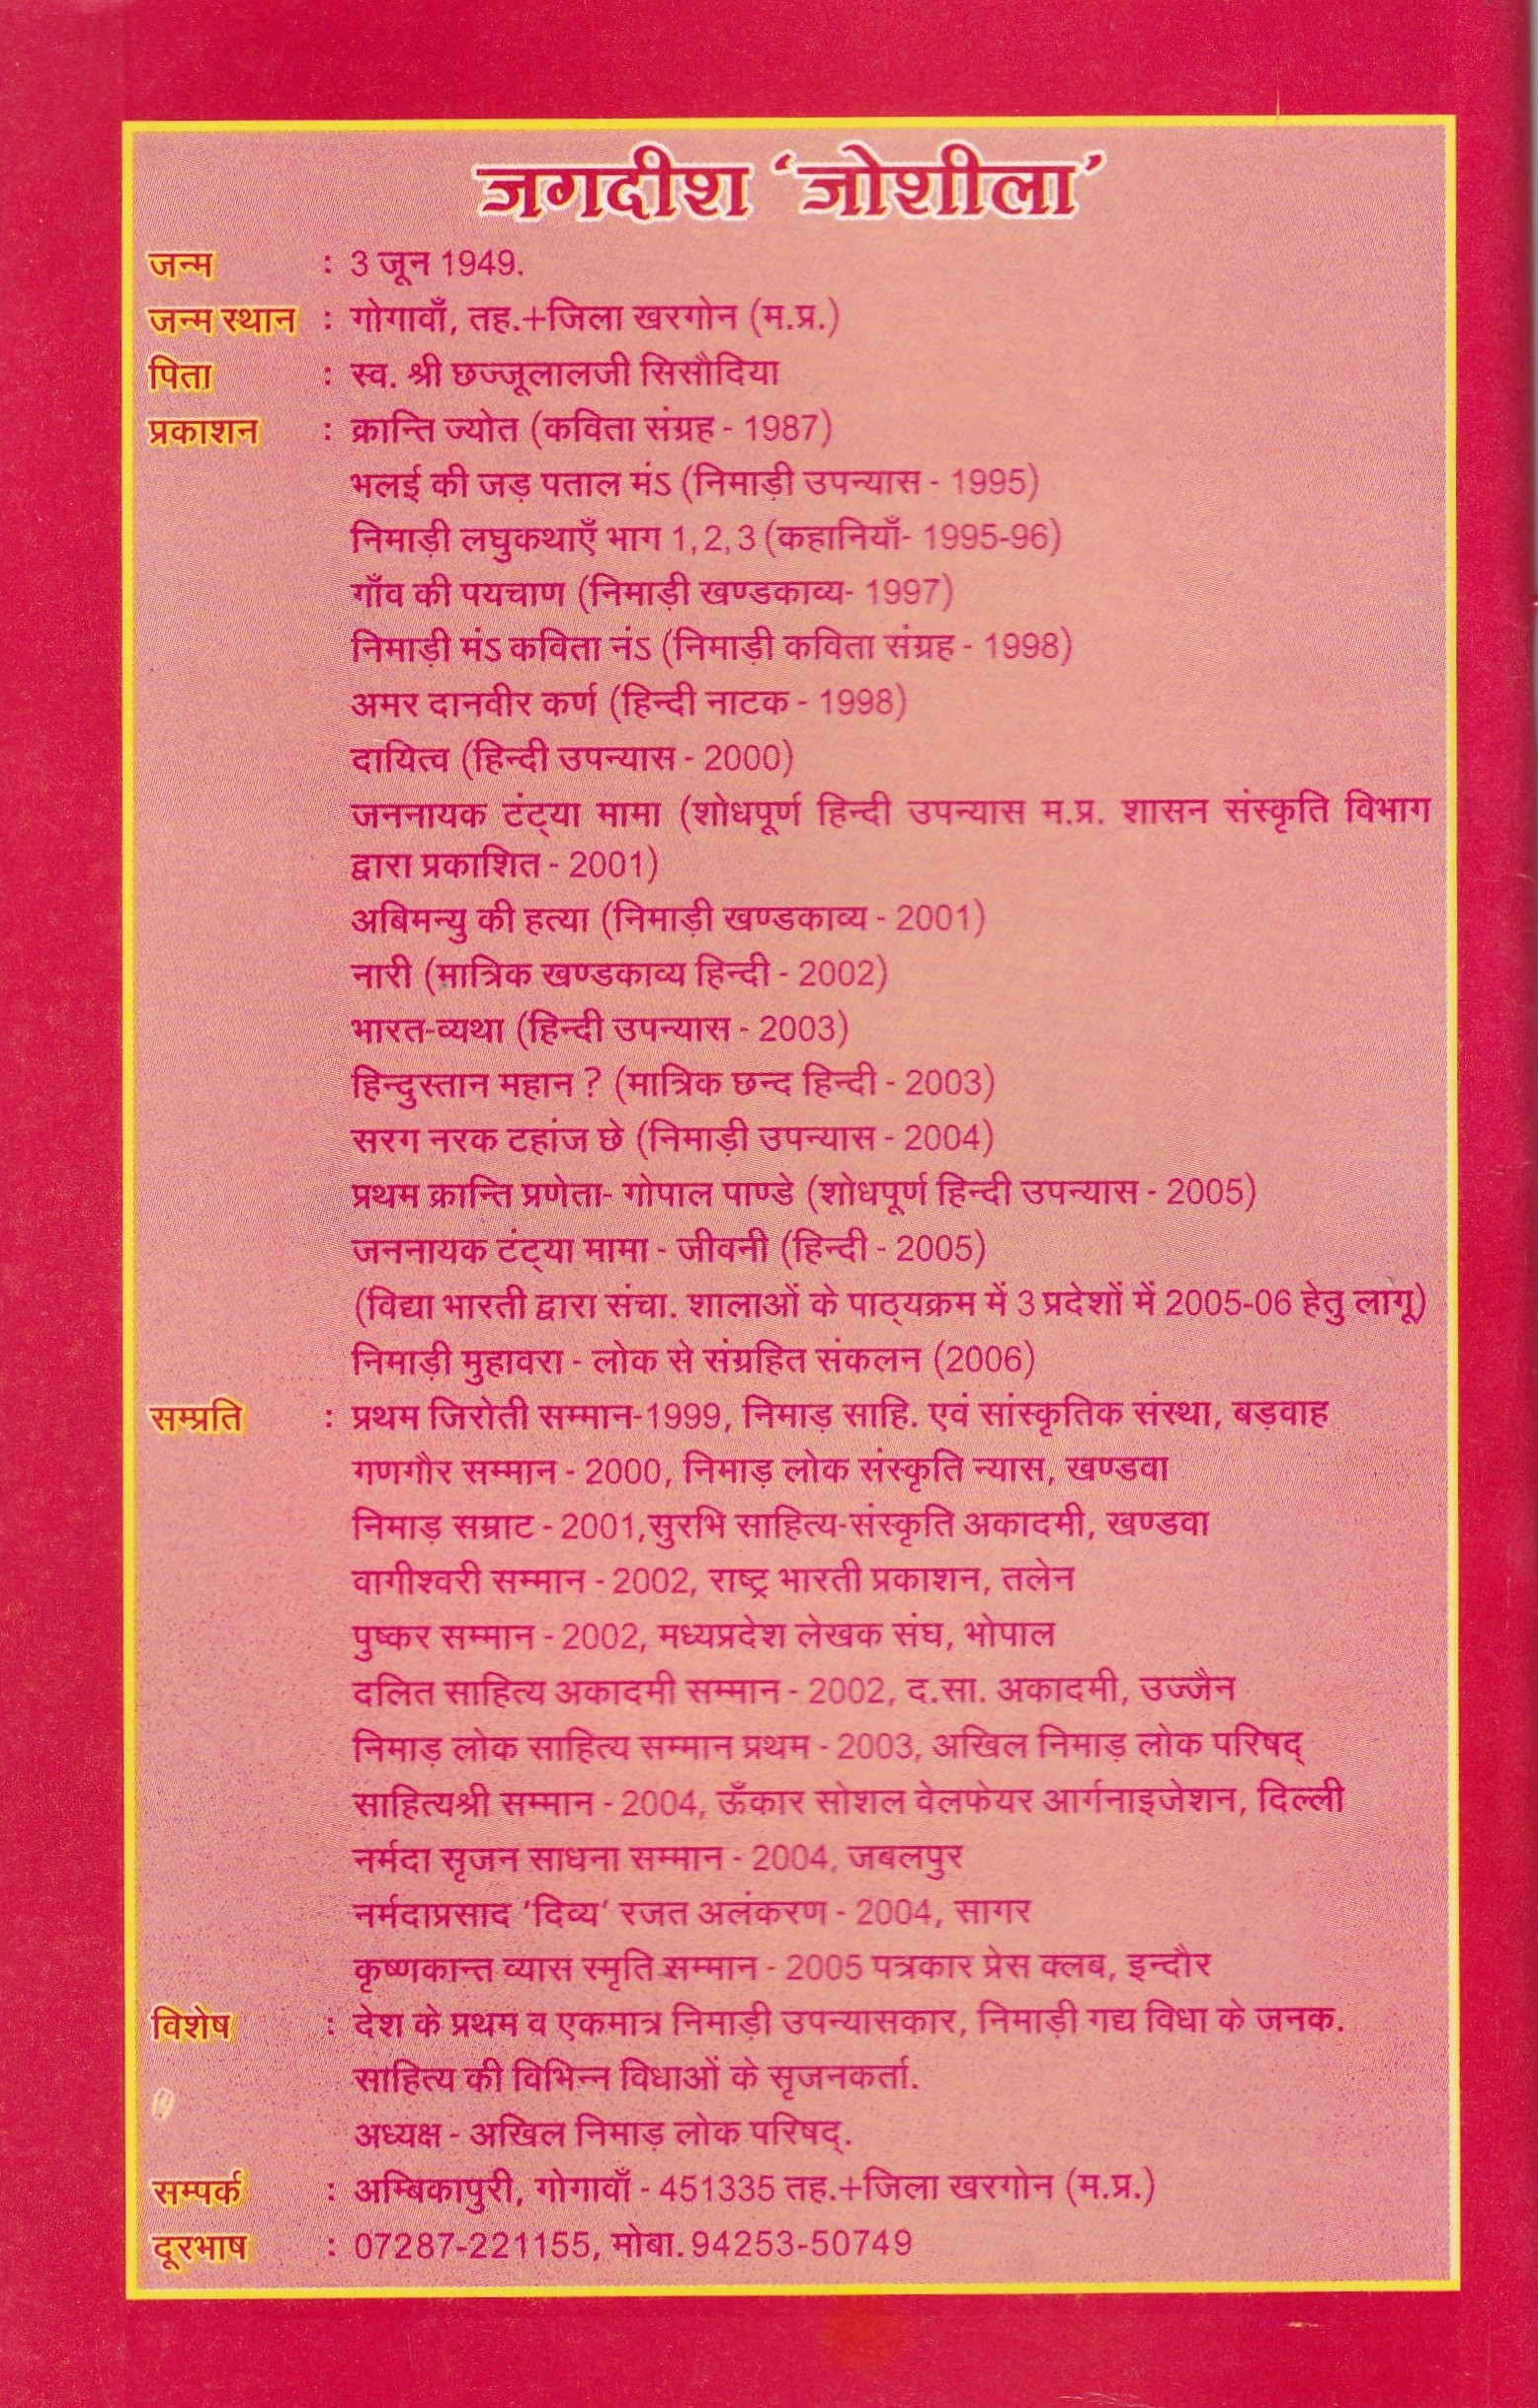 जगदीश ‘जोशीला’
जन्म : 3 जून 1949.
जन्म स्थान : गोगावाँ, तह.+जिला खरगोन (म.प्र.)
पिता : स्व. श्री छज्जूलालजी सिसौदिया
प्रकाशन : क्रान्ति ज्योत (कविता संग्रह - 1987)
भलई की जड़ पताल मंऽ (निमाड़ी उपन्यास - 1995)
निमाड़ी लघुकथाएँ भाग 1,2,3 (कहानियाँ- 1995-96)
गाँव की पयचाण (निमाड़ी खण्डकाव्य- 1997)
निमाड़ी मंऽ कविता नंऽ (निमाड़ी कविता संग्रह - 1998)
अमर दानवीर कर्ण (हिन्दी नाटक - 1998)
दायित्व (हिन्दी उपन्यास - 2000)
जननायक टंट्या मामा (शोधपूर्ण हिन्दी उपन्यास म.प्र. शासन संस्कृति विभाग
द्वारा प्रकाशित - 2001)
अबिमन्यु की हत्या (निमाड़ी खण्डकाव्य - 2001)
नारी (मात्रिक खण्डकाव्य हिन्दी - 2002)
भारत-व्यथा (हिन्दी उपन्यास - 2003)
हिन्दुस्तान महान ? (मात्रिक छन्द हिन्दी - 2003)
सरग नरक टहांज छे (निमाड़ी उपन्यास - 2004)
प्रथम क्रान्ति प्रणेता- गोपाल पाण्डे (शोधपूर्ण हिन्दी उपन्यास - 2005)
जननायक टंट्या मामा - जीवनी (हिन्दी - 2005)
(विद्या भारती द्वारा संचा. शालाओं के पाठ्यक्रम में 3 प्रदेशों में 2005-06 हेतु लागू)
निमाड़ी मुहावरा - लोक से संग्रहित संकलन (2006)
सम्प्रति : प्रथम जिरोती सम्मान-1999, निमाड़ साहि. एवं सांस्कृतिक संस्था, बड़वाह
गणगौर सम्मान - 2000, निमाड़ लोक संस्कृति न्यास, खण्डवा
निमाड़ सम्राट - 2001,सुरभि साहित्य-संस्कृति अकादमी, खण्डवा
वागीश्वरी सम्मान - 2002, राष्ट्र भारती प्रकाशन, तलेन
पुष्कर सम्मान - 2002, मध्यप्रदेश लेखक संघ, भोपाल
दलित साहित्य अकादमी सम्मान - 2002, द.सा. अकादमी, उज्जैन
निमाड़ लोक साहित्य सम्मान प्रथम - 2003, अखिल निमाड़ लोक परिषद्
साहित्यश्री सम्मान - 2004, ऊँकार सोशल वेलफेयर आर्गनाइजेशन, दिल्ली
नर्मदा सृजन साधना सम्मान - 2004, जबलपुर
नर्मदाप्रसाद ‘दिव्य’ रजत अलंकरण - 2004, सागर
कृष्णकान्त व्यास स्मृति सम्मान - 2005 पत्रकार प्रेस क्लब, इन्दौर
विशेष : देश के प्रथम व एकमात्र निमाड़ी उपन्यासकार, निमाड़ी गद्य विधा के जनक.
साहित्य की विभिन्न विधाओं के सृजनकर्ता.
अध्यक्ष - अखिल निमाड़ लोक परिषद्.
सम्पर्क : अम्बिकापुरी, गोगावाँ - 451335 तह.+जिला खरगोन (म.प्र.)
दूरभाष : 07287-221155, मोबा. 94253-50749